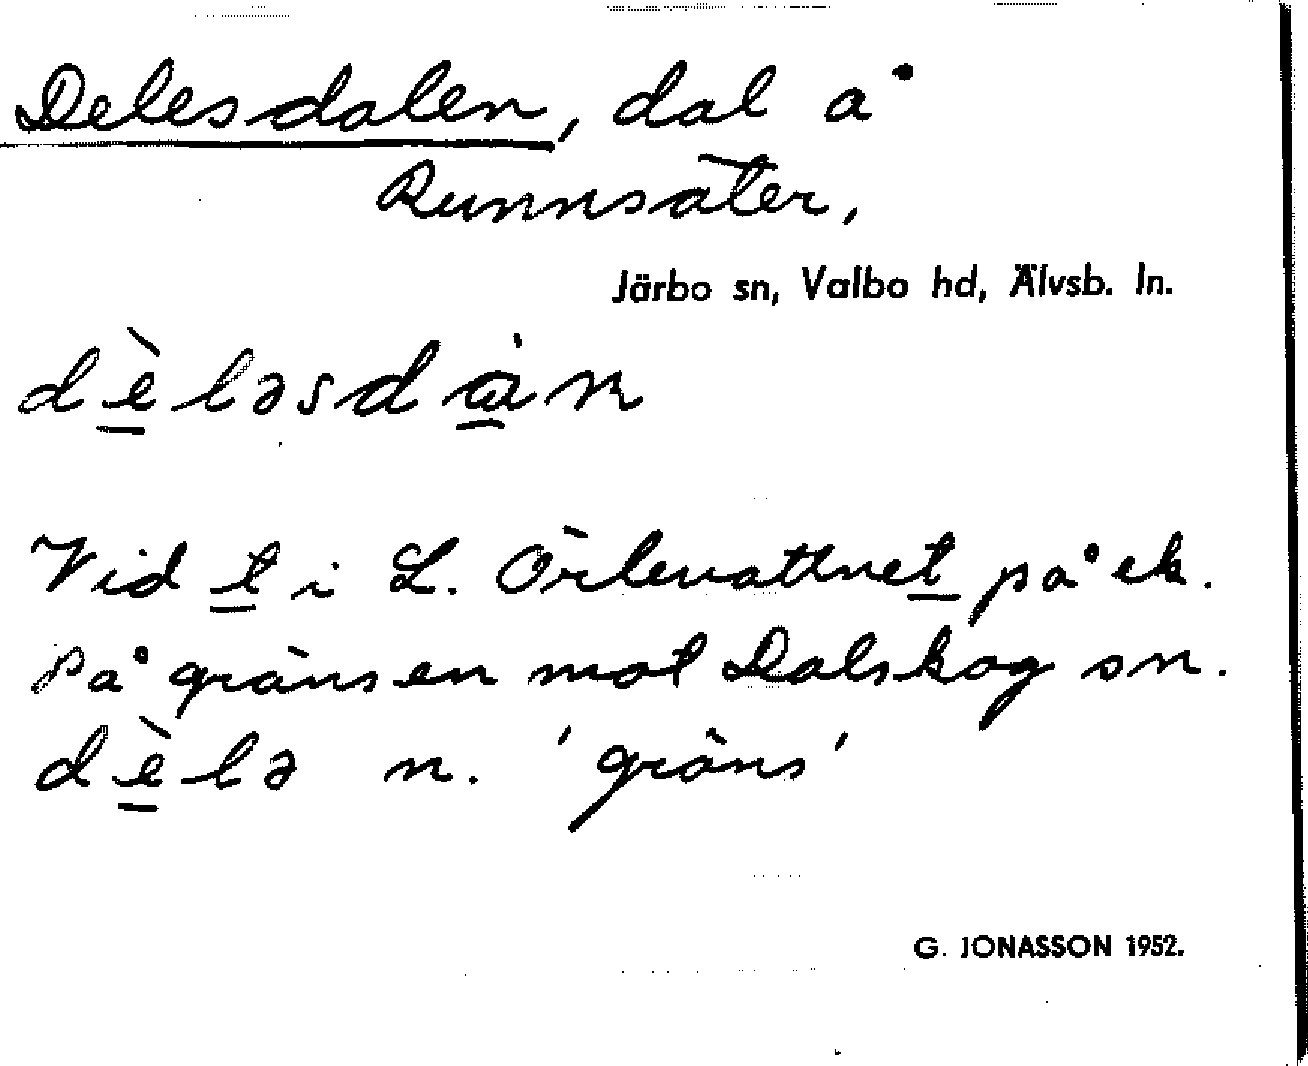 Delesdalen, dal å
Runnsäter,
Järbo sn, Valbo hd, Älvsb. ln.
dè̱ləsda̱̍n
Vid t̲ i L. Örlevattnet̲ på ek.
På gränsen mot Dalskog sn.
dè̱lə n. 'gräns'
G. JONASSON 1952.